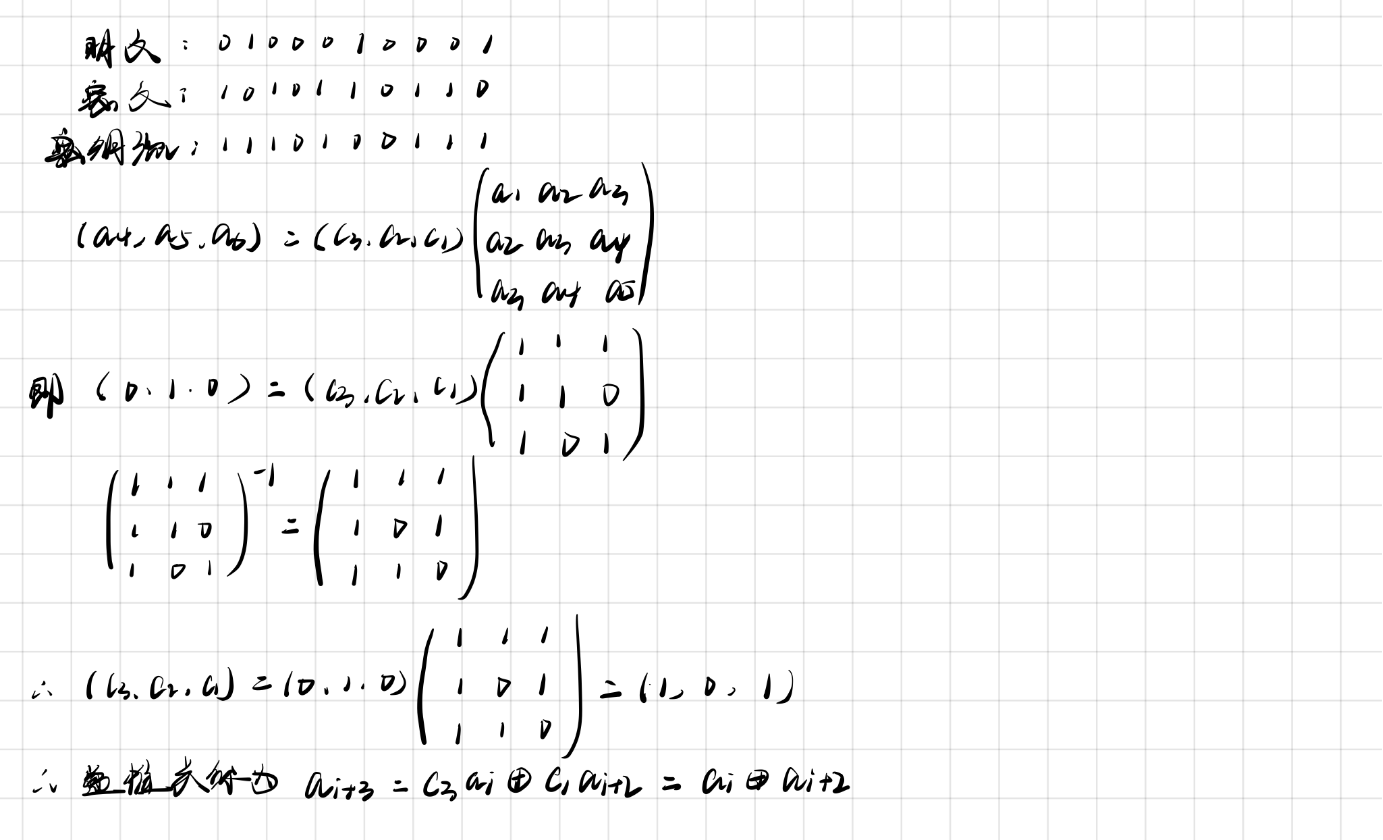 明文：0100010001
密文：1010110110
密钥流：1110100111
(a4, a5, a6) = (c3, c2, c1) (a1 a2 a3
a2 a3 a4
a3 a4 a5)
即 (0, 1, 0) = (c3, c2, c1) (1 1 1
1 1 0
1 0 1)
(1 1 1
1 1 0
1 0 1)^-1 = (1 1 1
1 0 1
1 1 0)
∴ (c3, c2, c1) = (0, 1, 0) (1 1 1
1 0 1
1 1 0) = (1, 0, 1)
∴ 递推关系为 ai+3 = c3 ai ⊕ c1 ai+2 = ai ⊕ ai+2